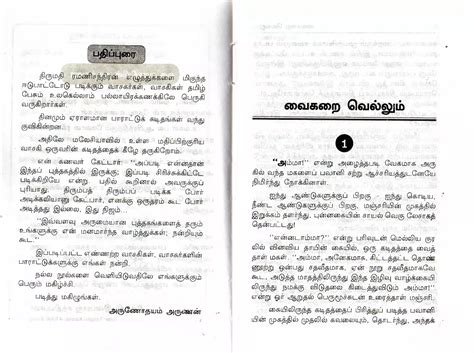 பதிப்புரை
திருமதி ரமணிசந்திரன் எழுத்துக்களை மிகுந்த
ஈடுபாட்டோடு படிக்கும் வாசகர்கள், வாசகிகள் தமிழ்
பேசும் உலகெல்லாம் பல்லாயிரக்கணக்கிலே பெருகி
வருகிறார்கள்.
தினமும் ஏராளமான பாராட்டுக் கடிதங்கள் வந்து
குவிகின்றன.
அதிலே மலேசியாவில் உள்ள மதிப்பிற்குரிய
வாசகி ஒருவரின் கடிதத்தைக் கீழே தருகிறோம்.
என் கணவர் கேட்டார்: "அப்படி என்னதான்
இந்தப் புத்தகத்தில் இருக்கு; இப்படி சிரிக்கச்கிட்டே
படிக்கிறியே என்று பதில் கூறினால் அவருக்குப்
புரியாது; திருமபத் திரும்பப் படிக்க எப்படி
அலுக்கலியானு கேட்பார், எனக்கு ஒருதரம் கூட போர்
அடித்ததில்லை. இது நிஜம்.
"இவ்வளவு அருமையான புத்தகங்களைத் தரும்
உங்களுக்கு என் மனமார்ந்த வாழ்த்துக்கள்; நன்றியும்
கூட"
இப்படிப்பட்ட எண்ணற்ற வாசகி, வாசகர்களின்
பாராட்டுகளுக்கு எங்கள் நன்றி.
நல்ல நூல்களை வெளியிடுவதிலே எங்களுக்கும்
பெரும் மகிழ்ச்சி.
படித்து மகிழுங்கள்.
அருணோதயம் அருணன்
வைகறை வெல்லும்
1
"அம்மா!" என்று அழைத்தபடி வேகமாக அருகில்
வந்த மகளைப் பவானி சற்று ஆச்சரியத்துடனேயே
நிமிர்ந்து நோக்கினாள்.
ஐந்து ஆண்டுகளுக்குப் பிறகு - ஐந்து கொடிய,
நீண்ட ஆண்டுகளுக்குப் பிறகு, மஞ்சரியின் முகத்தில்
இறுக்கம் தளர்ந்து, புன்னகையின் சாயல் வெகு லேசாகத்
தென்பட்டது!
"என்னடாம்மா?" என்று பரிவுடன் மெல்லிய குரலில்
வினவிய தாயின் கையில், ஒரு கடிதத்தை வைத்தாள்
மகள். "அம்மா, அனேகமாக, கிட்டத்தட்ட தொண்ணூற்று
ஒன்பது சதவீதமாக, ஏன் நூறு சதவீதமாகவே
கூட, அடுத்த மாதத்திலிருந்து இந்த இழிவு வாழ்க்கையிலிருந்து
நமக்கு விடுதலை கிடைத்துவிடும் அம்மா!"
என்று ஓர் ஆறுதல் பெருமூச்சுடன் உரைத்தாள் மஞ்சரி.
கையிலிருந்த கடிதத்தைப் படிக்கப் படிக்கப் பவானியின்
முகத்தில் முதலில் கவலையும், தொடர்ந்து, அந்தக்